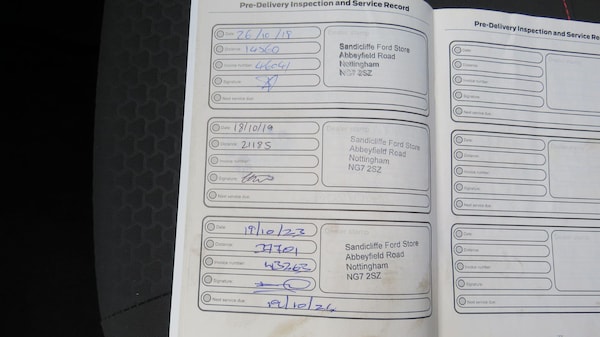 Pre-Delivery Inspection and Service Record
Date 26/10/18
Distance 14360
Invoice number
Signature
Next service due
Dealer stamp
Sandicliffe Ford Store
Abbeyfield Road
Nottingham
NG7 2SZ
Date 18/10/19
Distance 21185
Invoice number
Signature
Next service due
Dealer stamp
Sandicliffe Ford Store
Abbeyfield Road
Nottingham
NG7 2SZ
Date 19/10/23
Distance 37701
Invoice number 43263
Signature
Next service due 19/10/24
Dealer stamp
Sandicliffe Ford Store
Abbeyfield Road
Nottingham
NG7 2SZ
Pre-Delivery Inspection and Service Re
Date
Distance
Invoice number
Signature
Next service due
Dealer stamp
Date
Distance
Invoice number
Signature
Next service due
Dealer stamp
Date
Distance
Invoice number
Signature
Next service due
Dealer stamp